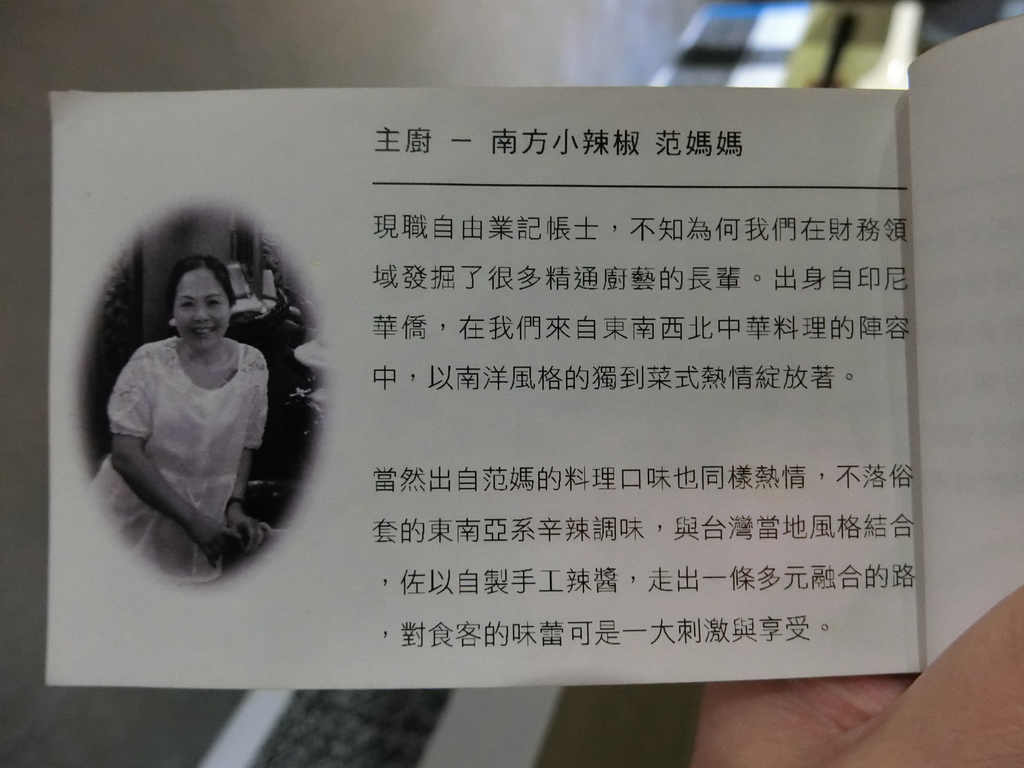 主廚 － 南方小辣椒 范媽媽
現職自由業記帳士，不知為何我們在財務領
域發掘了很多精通廚藝的長輩。出身自印尼
華僑，在我們來自東南西北中華料理的陣容
中，以南洋風格的獨到菜式熱情綻放著。
當然出自范媽的料理口味也同樣熱情，不落俗
套的東南亞系辛辣調味，與台灣當地風格結合
，佐以自製手工辣醬，走出一條多元融合的路
，對食客的味蕾可是一大刺激與享受。